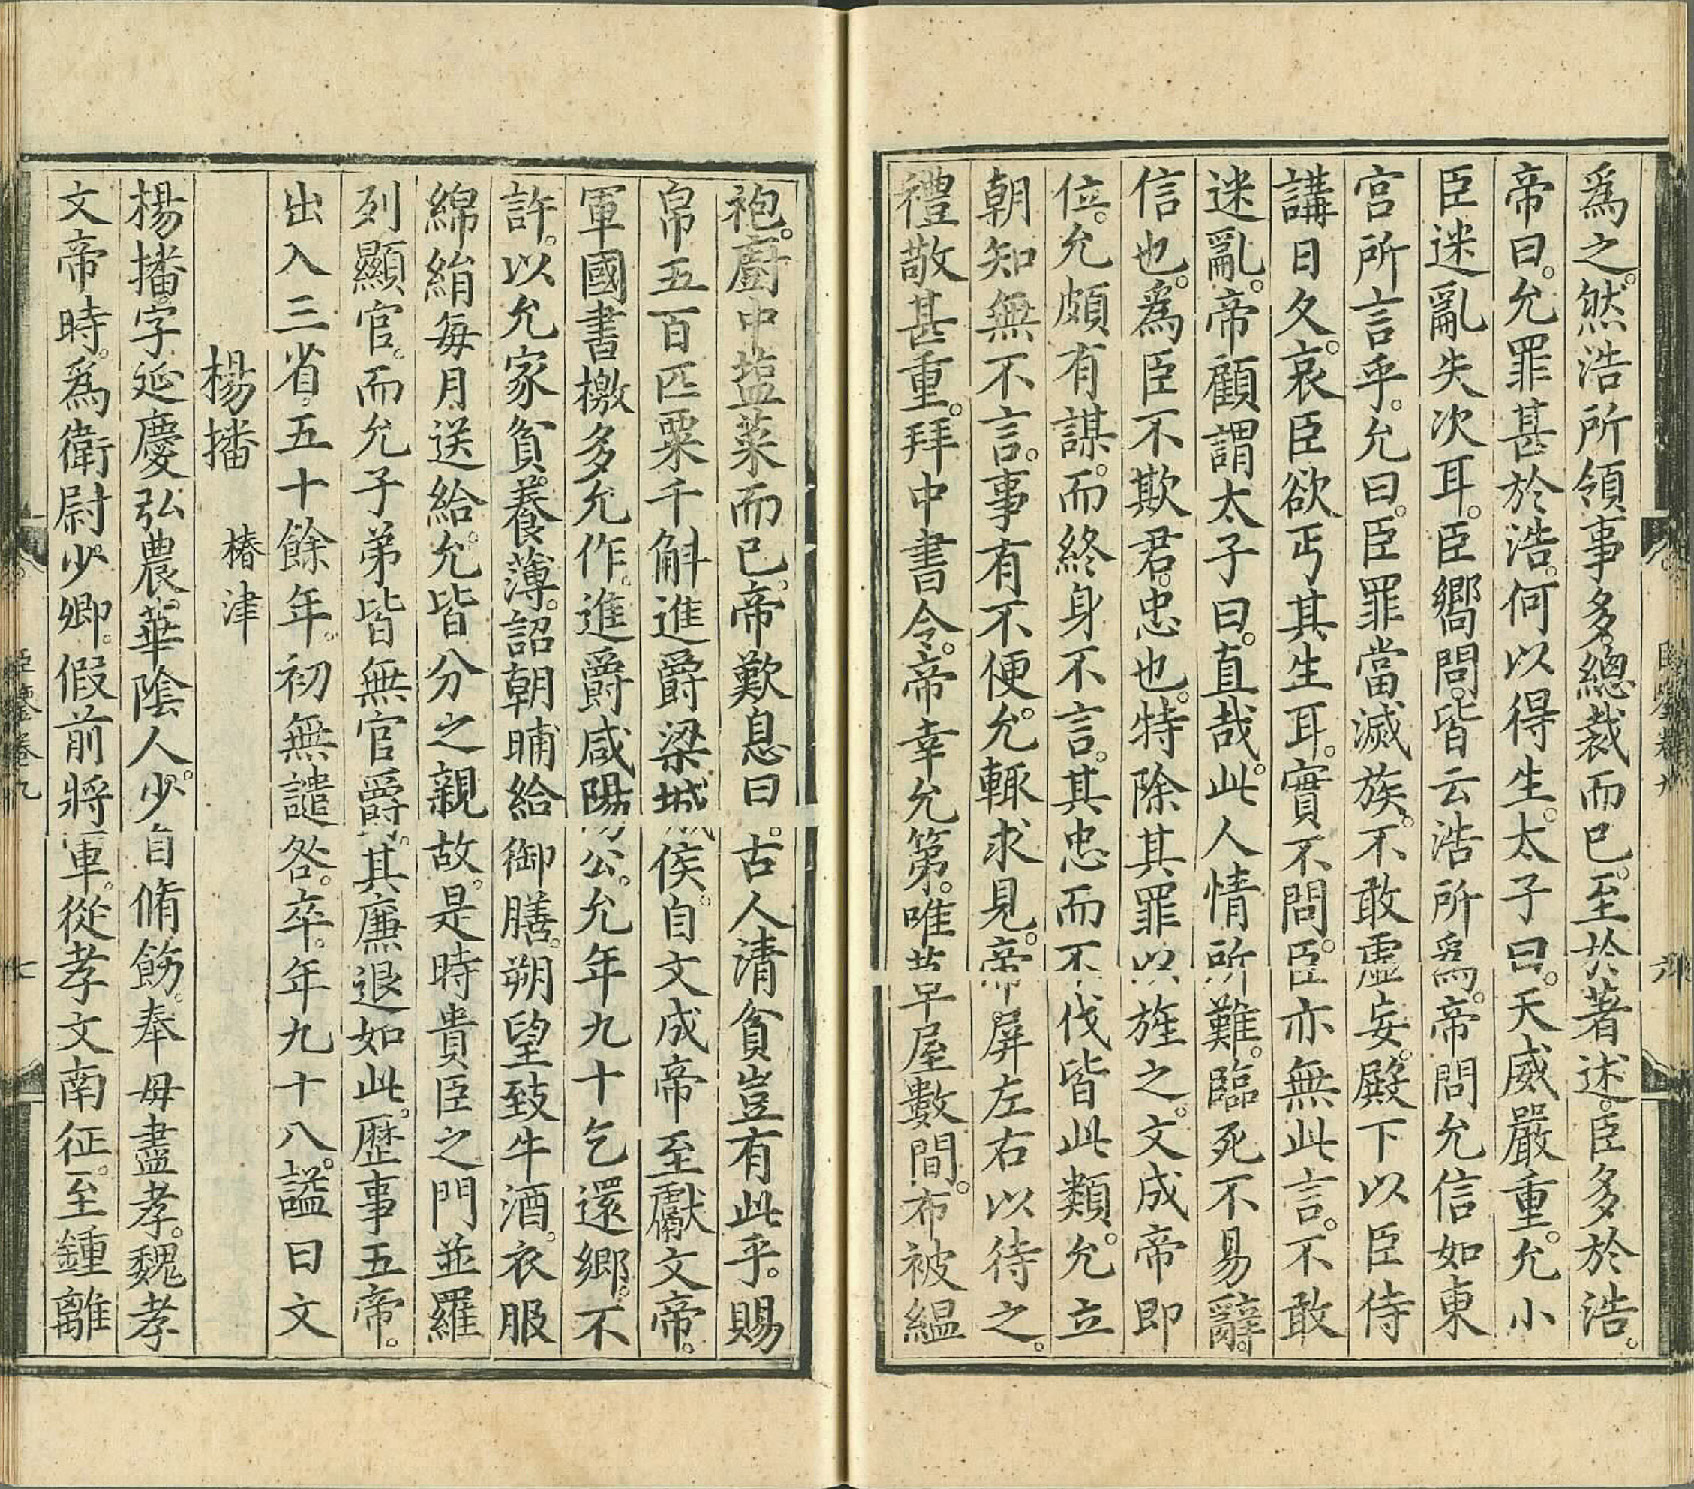 為之。然浩所領事多。總裁而已。至於著述。臣多於浩。
帝曰。允罪甚於浩。何以得生。太子曰。天威嚴重。允小
臣迷亂失次耳。臣嚮問。皆云浩所為。帝問允信如東
宮所言乎。允曰。臣罪當滅族。不敢虛妄。殿下以臣侍
講日久。哀臣欲丐其生耳。實不問臣。臣亦無此言。不敢
迷亂。帝顧謂太子曰。直哉。此人情所難。臨死不易辭。
信也。為臣不欺君。忠也。特除其罪以旌之。文成帝即
位。允頗有謀。而終身不言。其忠而不伐皆此類。允立
朝知無不言。事有不便。允輙求見。帝屏左右以待之。
禮敬甚重。拜中書令。帝幸允第。唯草屋數間。布被緼
袍。廚中塩菜而已。帝歎息曰。古人清貧豈有此乎。賜
帛五百匹粟千斛進爵梁城侯。自文成帝至獻文帝。
軍國書檄多允作。進爵咸陽公。允年九十乞還鄉。不
許。以允家貧。養薄。詔朝晡給御膳。朔望致牛酒。衣服
綿絹每月送給。允皆分之親故。是時貴臣之門並羅
列顯官。而允子弟皆無官爵。其廉退如此。歴事五帝。
出入三省。五十餘年。初無譴咎。卒。年九十八。諡曰文
楊播 椿 津
楊播。字延慶。弘農。華陰人。少自脩飭。奉母盡孝。魏孝
文帝時。為衛尉少卿。假前將軍。從孝文南征。至鍾離
臣鑒卷九
七